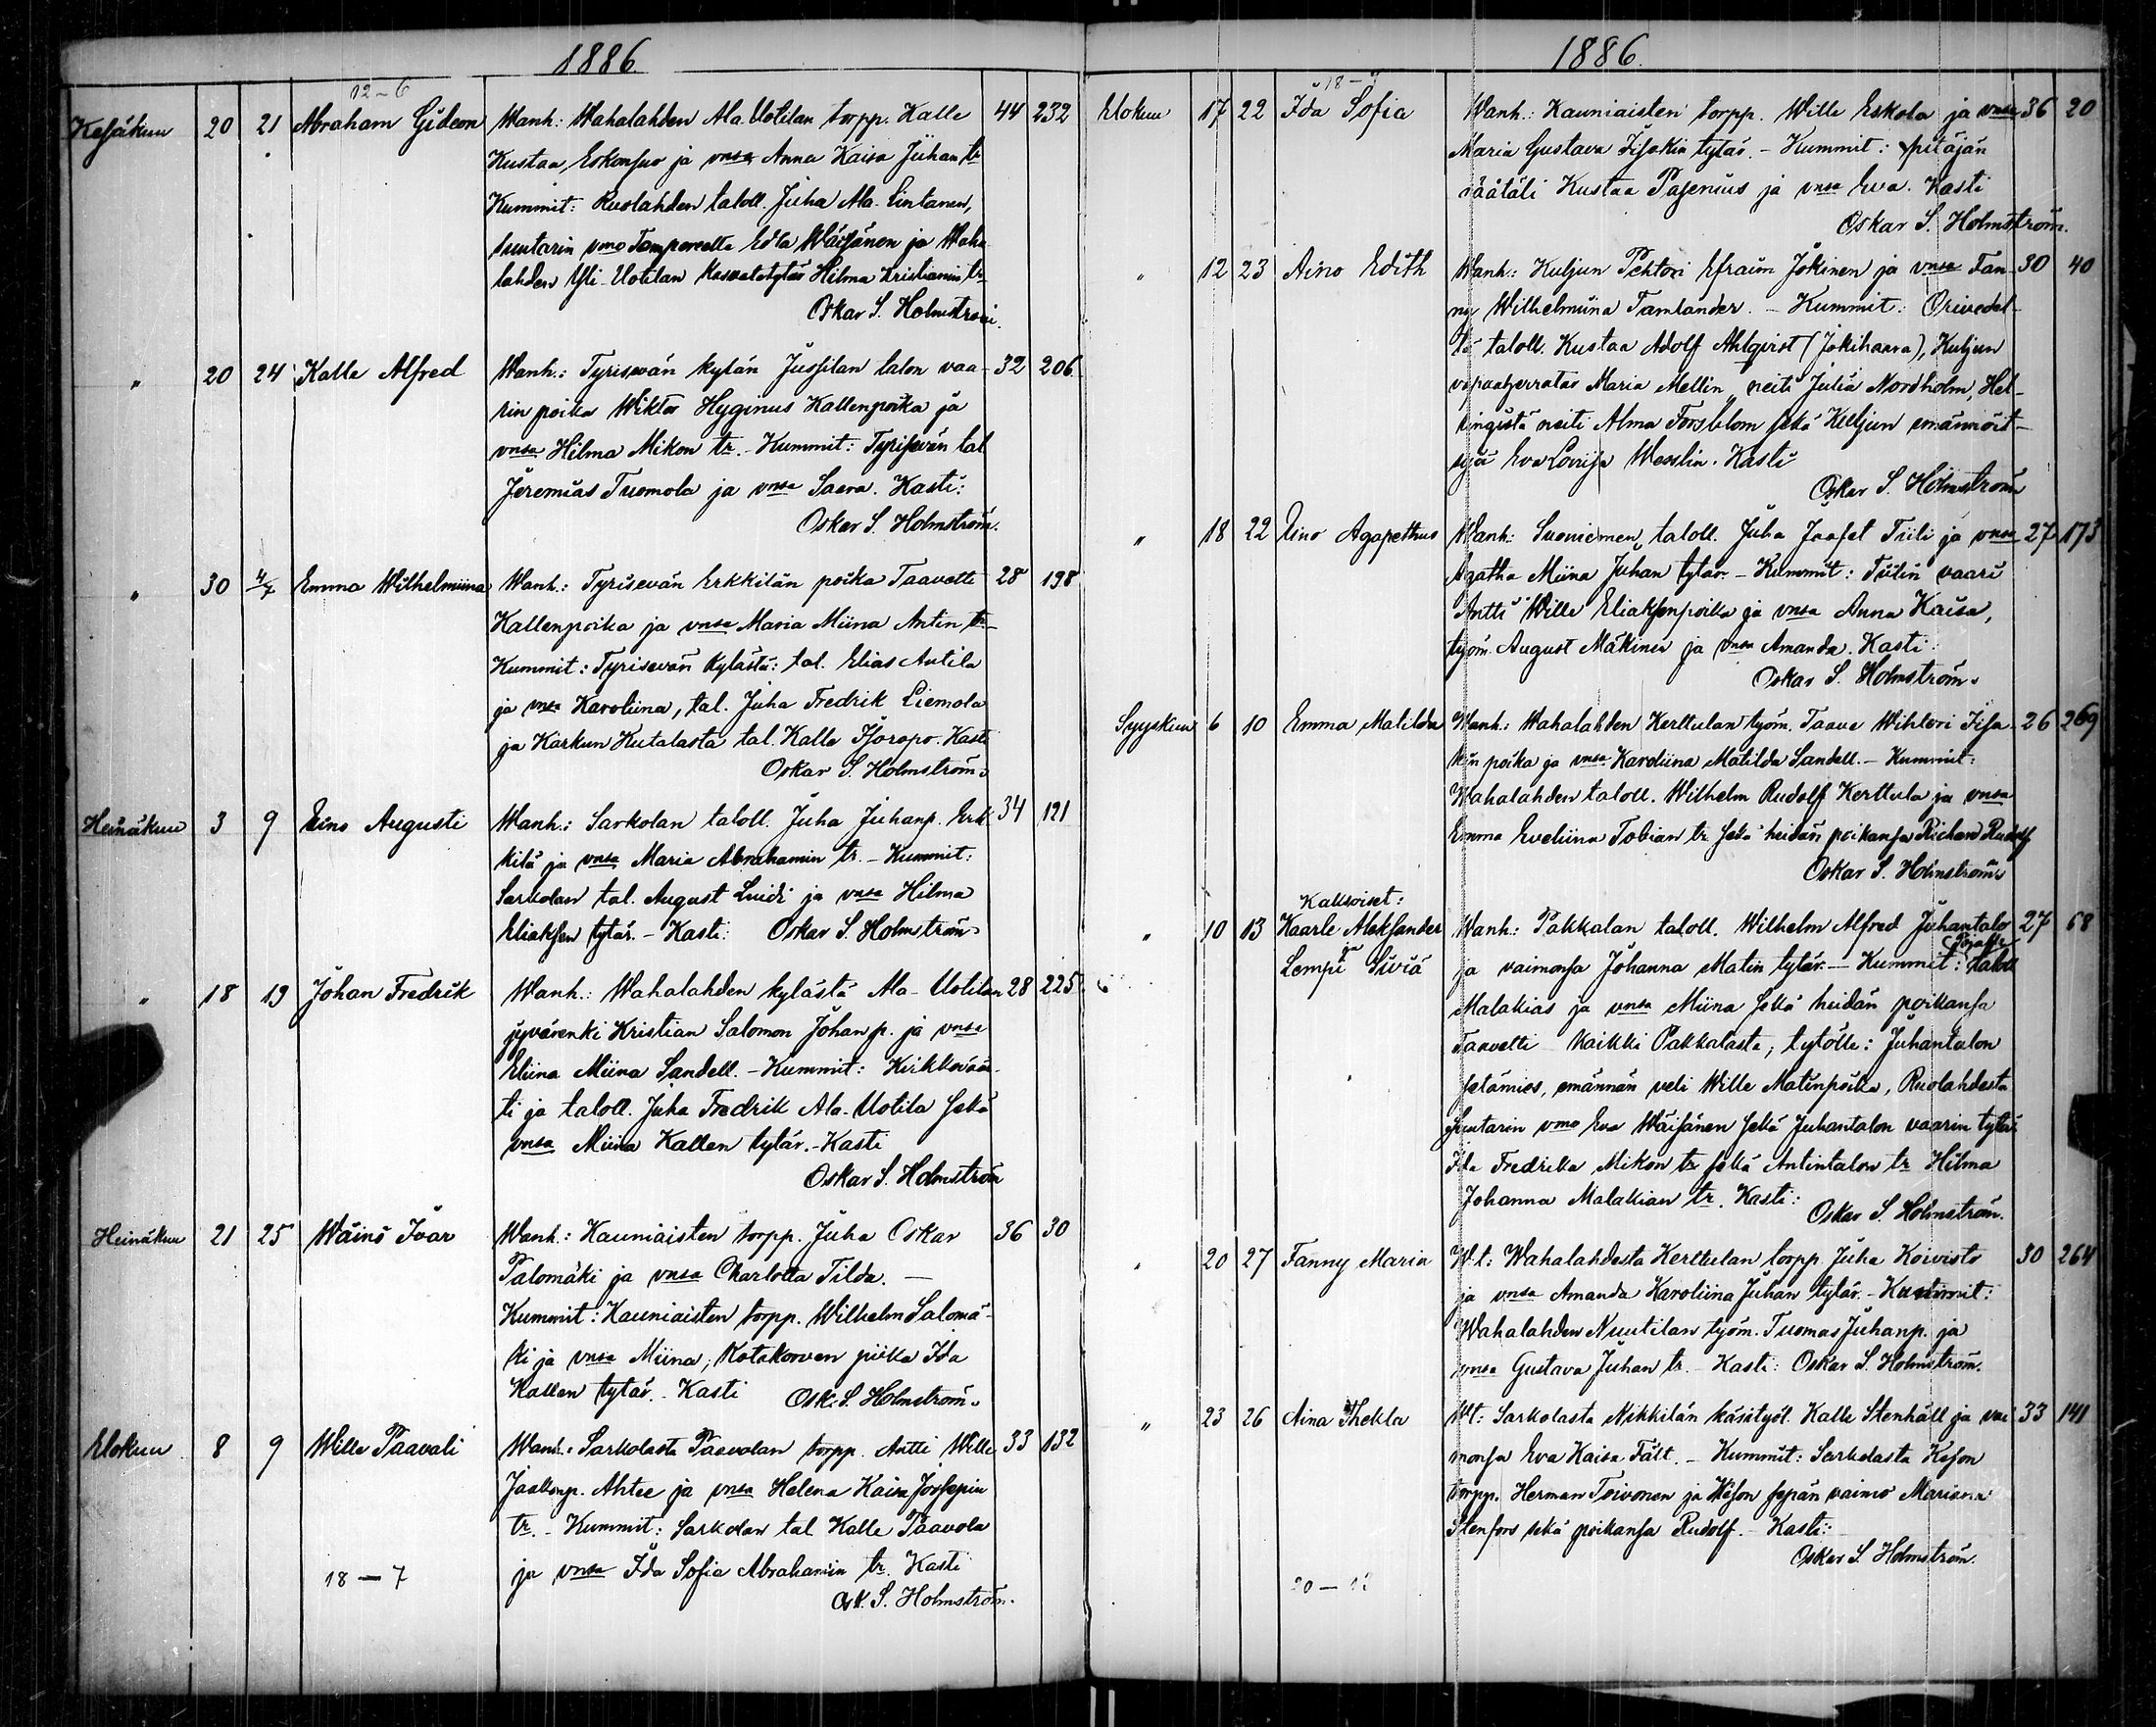 1886.
12-6
Kesäkuu 20 21 Abraham Gideon Wanh.: Wahalahden Ala-Uotilan torpp. Kalle 44 232
Kustaa Eskonsuo ja vnsa Anna Kaisa Juhan tr
Kummit: Ruolahden taloll. Juha Ala-
suutarin vmo Tampereelta Edla Wäisänen ja Waha-
lahden Yli-Uotilan kasvatetytär Hilma Kristianin tr
Oskar S. Holmström.
" 20 24 Kalle Alfred Wanh.: Tyrisevän kylän Jussilan talon vaa- 32 206
rin poika Wiktor Hyginus Kallenpoika ja
vnsa Hilma Mikon tr. - Kummit: Tyrisevän tal.
Jeremias Tuomola ja vnsa Saara. Kasti:
Oskar S. Holmström.
" 30 4/7 Emma Wilhelmiina Wanh.: Tyrisevän Erkkilän poika Taavetti 28 198
Kallenpoika ja vnsa Maria Miina Antin tr -
Kummit: Tyrisevän kylästä: tal. Elias Antila
ja vnsa Karoliina, tal. Juha Fredrik Liemola
ja Karkun Kutalasta tal. Kalle Isoropo. Kasti
Oskar S. Holmström.
Heinäkuu 3 9 Eino Augusti Wanh.: Sarkolan taloll. Juha Juhanp. Erk- 34 121
kilä ja vnsa Maria Abrahamin tr. - Kummit:
Sarkolan tal. August Luidi ja vnsa Hilma
Eliaksen tytär. - Kasti: Oskar S. Holmström.
" 18 19 Johan Fredrik Wanh.: Wahalahden kylästä Ala-Uotilan 28 225
jyvärenki Kristian Salomon Johanp. ja vnsa
Eliina Miina Sandell. - Kummit: Kirkkovää-
ti ja taloll. Juha Fredrik Ala-Uotila sekä
vnsa Miina Kallen tytär. - Kasti
Oskar S. Holmström
Heinäkuu 21 25 Wäinö Ivar Wanh.: Kauniaisten torpp. Juha Oskar 36 30
Palomäki ja vnsa Charlotta Tilda. -
Kummit: Kauniaisten torpp. Wilhelm Salomä-
ki ja vnsa Miina; Kotakorven piika Ida
Kallen tytär. - Kasti Osk. S. Holmström.
Elokuu 8 9 Wille Paavali Wanh.: Sarkolasta Paavolan torpp. Antti Wille 33 132
Jaakonp. Ahtee ja vnsa Helena Kaisa Joosepin
tr. - Kummit: Sarkolan tal. Kalle Paavola
ja vnsa Ida Sofia Abrahamin tr. Kasti
Osk. S. Holmström.
18 - 7
1886.
18-7
Elokuu 17 22 Ida Sofia Wanh.: Kauniaisten torpp. Wille Eskola ja vnsa 36 20
Maria Gustava Iisakin tytär. - Kummit: pitäjän
räätäli Kustaa Pasenius ja vnsa Eva. Kasti
Oskar S. Holmström.
" 12 23 Aino Edith Wanh.: Kuljun Pehtori Efraim Jokinen ja vnsa Fan- 30 40
ny Wilhelmiina Tamlander. - Kummit: Orivedel-
tä taloll. Kustaa Adolf Ahlqvist (Jokihaara), Kuljun
vapaaherratar Maria Mellin, neiti Julia Nordholm, Hel-
singistä neiti Alma Forsblom sekä Kuljun emännöit-
sijä Eva Lovisa Wesslin. Kasti
Oskar S. Holmström
" 18 22 Eino Agapethus Wanh: Suoniemen taloll. Juha Jaafet Tiili ja vnsa 27 173
Agatha Miina Juhan tytär. - Kummit: Tiilin vaari
Antti Wille Eliaksenpoika ja vnsa Anna Kaisa,
työm. August Mäkinen ja vnsa Amanda. Kasti:
Oskar S. Holmström.
Syyskuu 6 10 Emma Matilda Wanh.: Wahalahden Kerttulan työm. Taave Wihtori Iisa- 26 269
kin poika ja vnsa Karoliina Matilda Sandell. - Kummit:
Wahalahden taloll. Wilhelm Rudolf Kerttula ja vnsa
Emma Eveliina Tobian tr sekä heidän poikansa Richard Rudolf
Oskar S. Holmström.
Kaksoiset:
" 10 13 Kaarle Aleksander Wanh.: Pakkalan taloll. Wilhelm Alfred Juhantalo 27 68
ja
Lempi Siviä ja vaimonsa Johanna Matin tytär. - Kummit: Pojalle: taloll
Malakias ja vnsa Miina sekä heidän poikansa
Taavetti kaikki Pakkalasta; tytölle: Juhantalon
setämies, emännän veli Wille Matinpoika, Ruolahdesta
suutarin vmo Eva Wäisänen sekä Juhantalon vaarin tytär
Ida Fredrika Mikon tr sekä Antintalon tr Hilma
Johanna Malakian tr. Kasti:
Oskar S. Holmström.
" 20 27 Fanny Maria W:t: Wahalahdesta Kerttulan torpp. Juha Koivisto 30 264
ja vnsa Amanda Karoliina Juhan tytär. - Kummit:
Wahalahden Nuutilan työm. Tuomas Juhanp. ja
vnsa Gustava Juhan tr. - Kasti: Oskar S. Holmström.
" 23 26 Aina Thekla W:t: Sarkolasta Nikkilän käsityöl. Kalle Stenhäll ja vai- 33 141
monsa Eva Kaisa Fält. - Kummit: Sarkolasta Keson
torpp. Herman Toivonen ja Keson sepän vaimo Mariana
Stenfors sekä poikansa Rudolf. - Kasti:
Oskar S. Holmström.